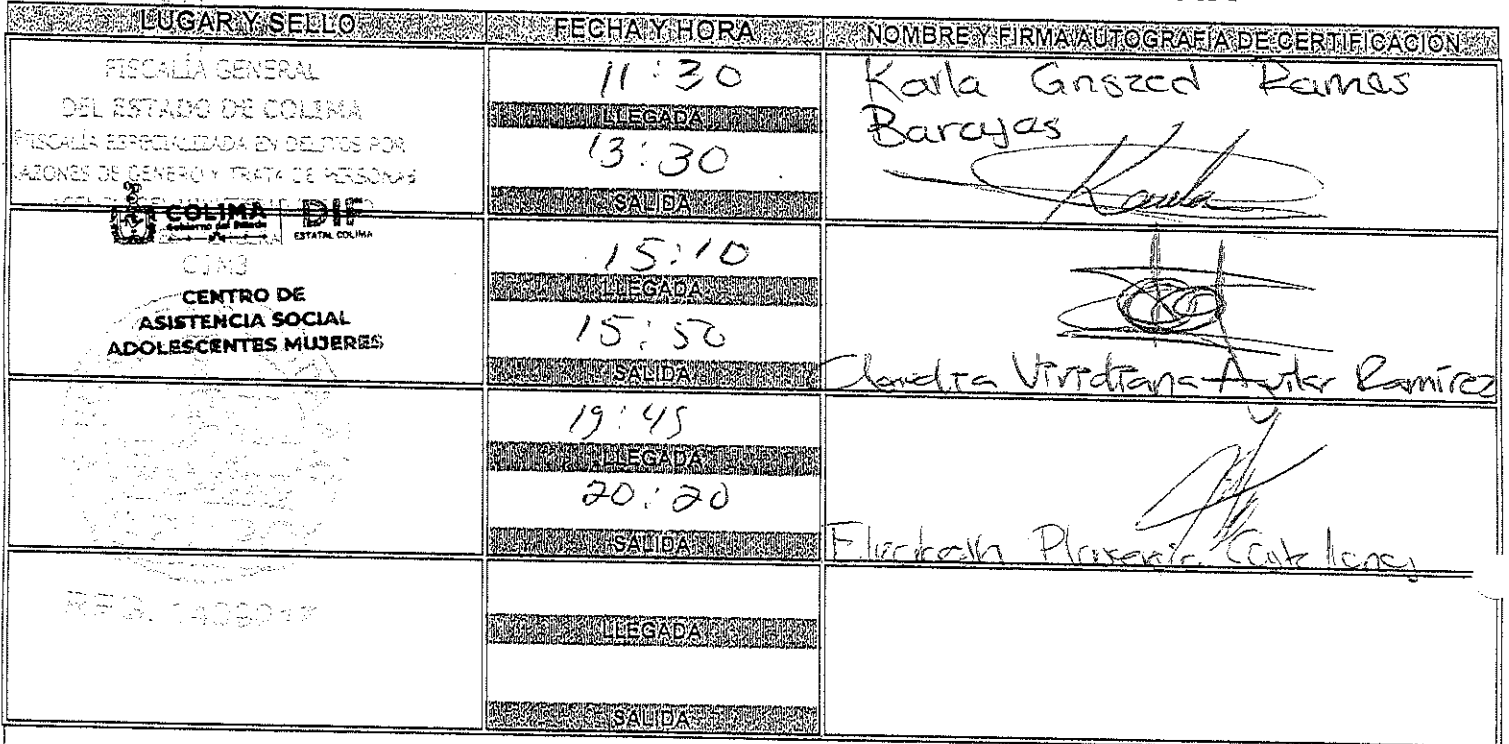 LUGAR Y SELLO
FECHA Y HORA
NOMBRE Y FIRMA AUTOGRAFIA DE CERTIFICACIÓN
FISCALÍA GENERAL
DEL ESTADO DE COLIMA
FISCALÍA ESPECIALIZADA EN DELITOS POR
RAZONES DE GENERO Y TRATA DE PERSONAS
11:30
LLEGADA
13:30
SALIDA
Karla Ramos
Barajas
Karla
COLIMA
Gobierno del Estado
DIF
ESTATAL COLIMA
CENTRO DE
ASISTENCIA SOCIAL
ADOLESCENTES MUJERES
15:10
LLEGADA
15:50
SALIDA
Claudia Viridiana Aguilar Ramírez
19:45
LLEGADA
20:20
SALIDA
LLEGADA
SALIDA